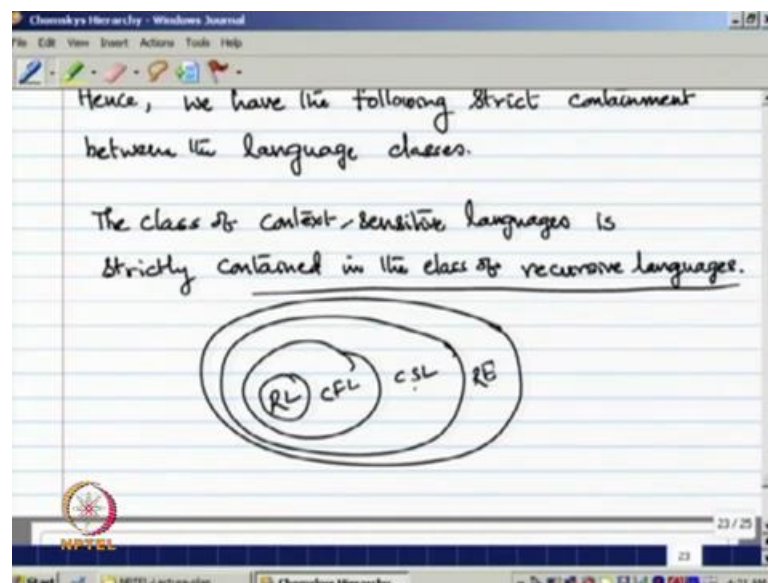 Chomskys Hierarchy - Windows Journal
File Edit View Insert Actions Tools Help
Hence, we have the following strict containment
between the language classes.
The class of context-sensitive languages is
strictly contained in the class of recursive languages.
RL CFL CSL RE
NPTEL
23 / 25
23
Start NPTEL-Lecture-plan Chomskys Hierarchy